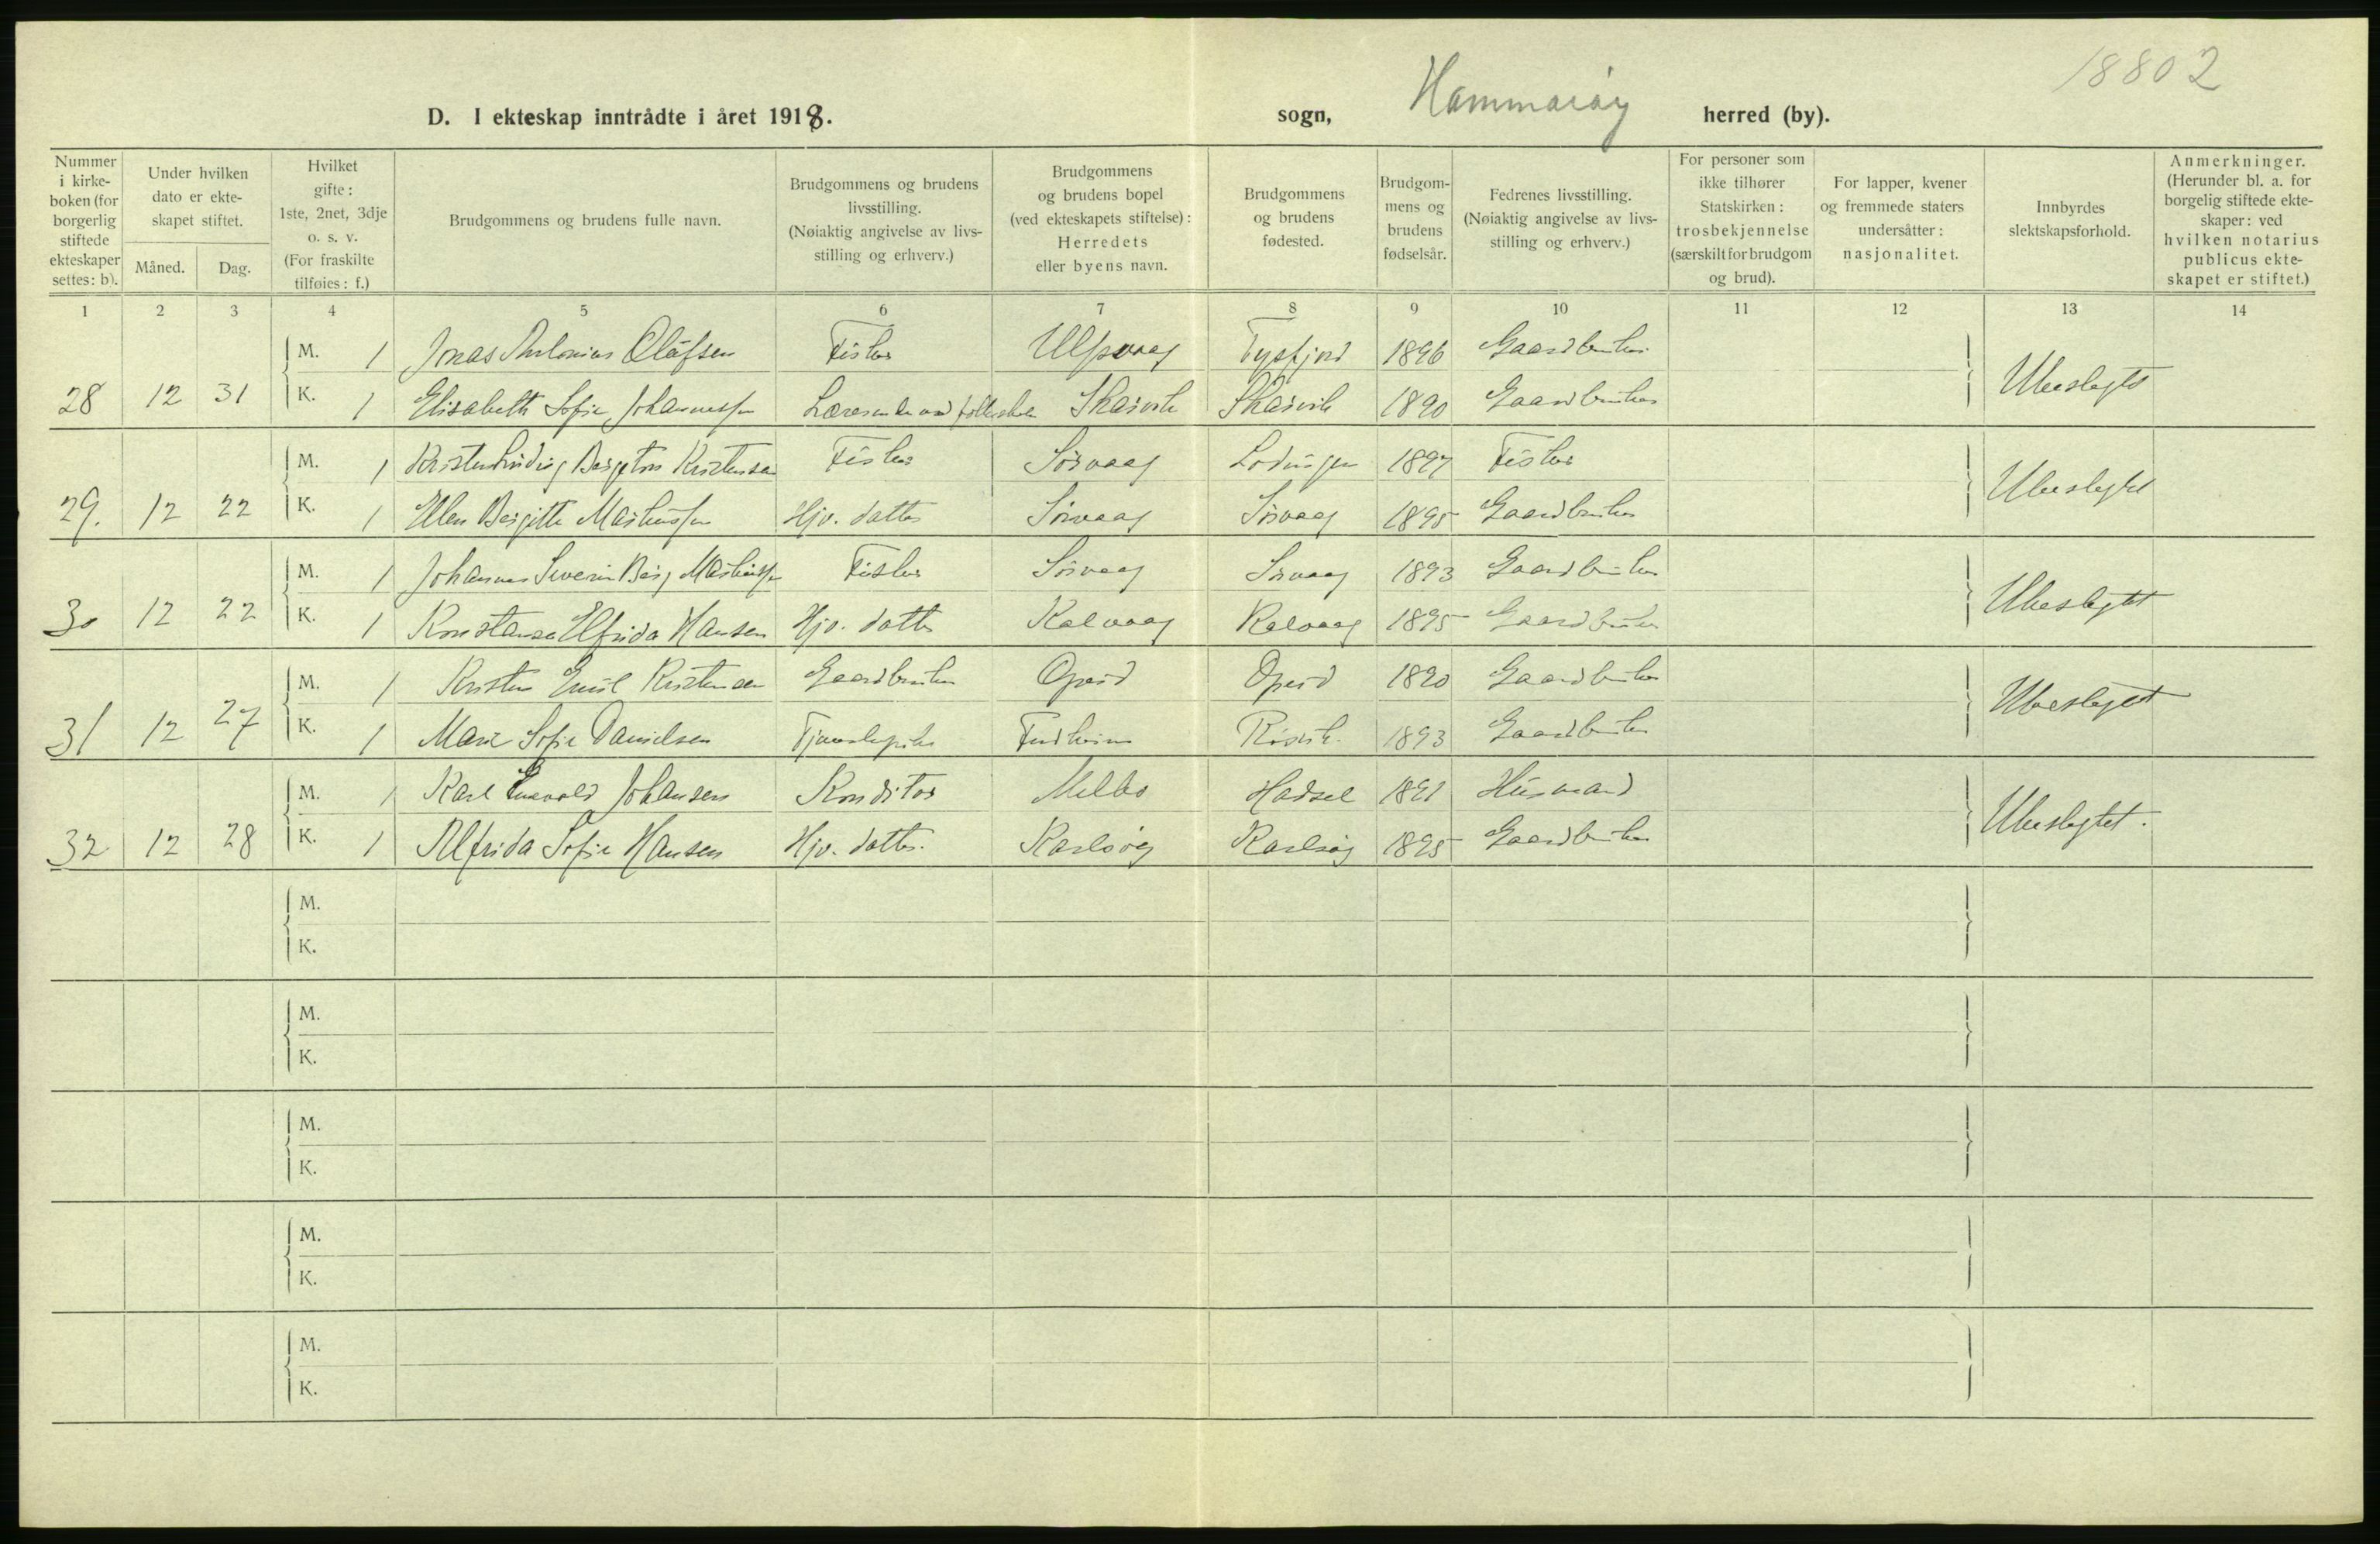 18802
D. I ekteskap inntrådte i året 1918. sogn, Hammarøy herred (by).
Nummer i kirkeboken (for borgerlig stiftede ekteskaper settes: b).
Under hvilken dato er ekteskapet stiftet.
Måned. Dag.
Hvilket gifte: 1ste, 2net, 3dje o. s. v. (For fraskilte tilføies: f.)
Brudgommens og brudens fulle navn.
Brudgommens og brudens livsstilling. (Nøiaktig angivelse av livsstilling og erhverv.)
Brudgommens og brudens bopel (ved ekteskapets stiftelse): Herredets eller byens navn.
Brudgommens og brudens fødested.
Brudgommens og brudens fødselsår.
Fedrenes livsstilling. (Nøiaktig angivelse av livsstilling og erhverv.)
For personer som ikke tilhører Statskirken: trosbekjennelse (særskilt for brudgom og brud).
For lapper, kvener og fremmede staters undersåtter: nasjonalitet.
Innbyrdes slektskapsforhold.
Anmerkninger. (Herunder bl. a. for borgelig stiftede ekteskaper: ved hvilken notarius publicus ekteskapet er stiftet.)
1 2 3 4 5 6 7 8 9 10 11 12 13 14
M. 1 Jonas Antonius Olafsen Fisker Ulpvaag Tysfjord 1896 Gaardbruker
28 12 31 K. 1 Elisabeth Sofie Johannessen Lærerinde ved folkeskole Skarvik Skarvik 1890 Gaardbruker Ubeslegtet
M. 1 Kristensen Fisker Sørvaag Lødingen 1897 Fisker
29. 12 22 K. 1 Ellen Bergitte Markussen Hjv. datter Sørvaag Sørvaag 1895 Gaardbruker Ubeslegtet
M. 1 Johannes Severin Berg Markussen Fisker Sørvaag Sørvaag 1893 Gaardbruker
30 12 22 K. 1 Konstanse Elfrida Hansen Hjv. datter Kalvaag Kalvaag 1895 Gaardbruker Ubeslegtet
M. 1 Kristen Emil Kristensen Gaardbruker Opeid Opeid 1890 Gaardbruker
31 12 27 K. 1 Marie Sofie Danielsen Tjenestepike 1893 Gaardbruker Ubeslegtet
M. 1 Karl Johansen Konditor Melbo Hadsel 1891 Husmand
32 12 28 K. 1 Alfrida Sofie Hansen Hjv. datter. Karlsøy Karlsøy 1895 Gaardbruker Ubeslegtet.
M.
K.
M.
K.
M.
K.
M.
K.
M.
K.